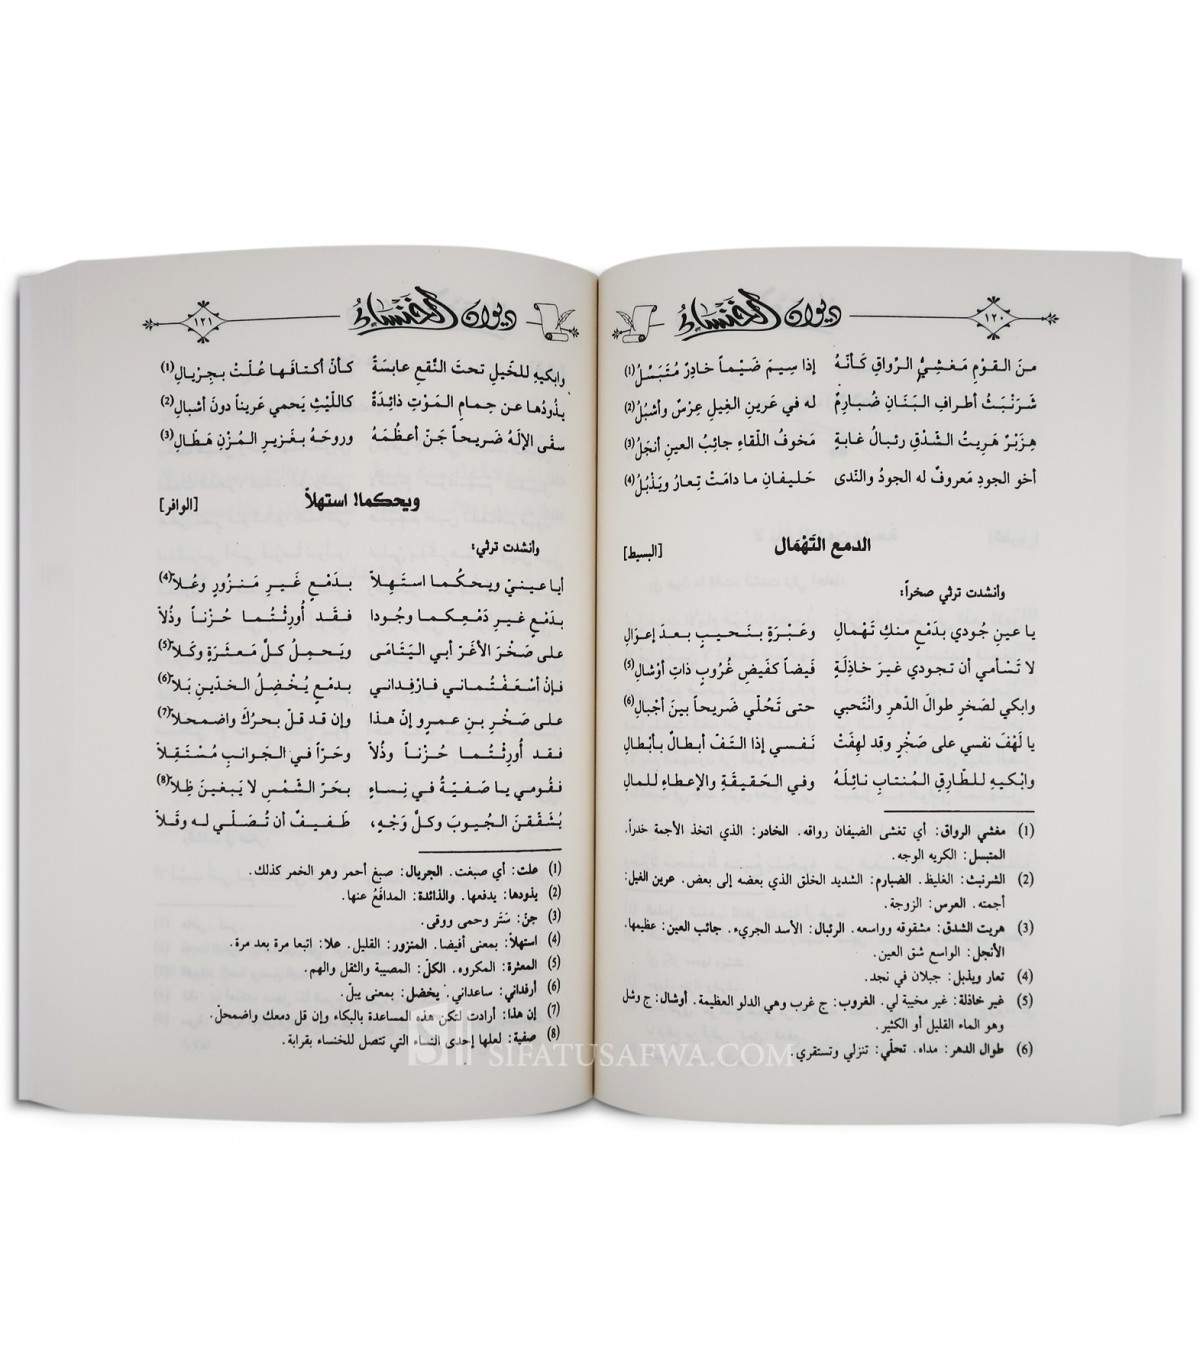 ديوان الخنساء
١٢٠
منَ القَوْمِ مَغشِيُّ الرّواقِ كَأنّهُ إذا سِيمَ ضَيْماً خادِرٌ مُتَبَسِّلُ(1)
شَرَنْبَثُ أطرافِ البَنَانِ ضُبارِمٌ له في عَرينِ الغِيلِ عِرْسٌ وأشبُلُ(2)
هِزَبْرٌ هَرِيتُ الشّدْقِ رئبالُ غابةٍ مَخوفُ اللّقاءِ جائِبُ العينِ أنجَلُ(3)
أخو الجودِ مَعروفٌ له الجودُ والنّدى حَليفانِ ما دامَتْ تِعارُ ويَذْبُلُ(4)
الدمع التَهْمَال [البسيط]
وأنشدت ترثي صخراً:
يا عينِ جُودي بدَمْعٍ منكِ تَهْمالِ وعَبْرَةٍ بنَحيبٍ بعدَ إعوَالِ
لا تَسْأمي أن تجودي غيرَ خاذِلَةٍ فَيضاً كفَيضِ غُروبٍ ذاتِ أوْشالِ(5)
وابكي لصَخرٍ طوالَ الدّهرِ وانْتَحبي حتى تَحُلّي ضَريحاً بينَ أجْبالِ(6)
يا لَهْفَ نفسي على صَخْرٍ وقد لهِفَتْ نَفسي إذا التَفّ أبطالٌ بأبْطالِ
وابْكيهِ للطّارِقِ المُنتابِ نائِلَهُ وفي الحَقيقَةِ والإعطاءِ للمالِ
(1) مغشي الرواق: أي تغشى الضيفان رواقه. الخادر: الذي اتخذ الأجمة خدراً.
المتبسل: الكريه الوجه.
(2) الشرنبث: الغليظ. الضبارم: الشديد الخلق الذي بعضه إلى بعض. عرين الغيل:
أجمته. العرس: الزوجة.
(3) هريت الشدق: مشقوقه وواسعه. الرئبال: الأسد الجريء. جائب العين: عظيمها.
الأنجل: الواسع شق العين.
(4) تعار ويذبل: جبلان في نجد.
(5) غير خاذلة: غير مخيبة لي. الغروب: ج غرب وهي الدلو العظيمة. أوشال: ج وشل
وهو الماء القليل أو الكثير.
(6) طوال الدهر: مداه. تحلّي: تنزلي وتستقري.
ديوان الخنساء
١٢١
وابكيهِ للخَيلِ تحتَ النَّقعِ عابسَةً كأنّ أكتافَها عُلّتْ بجِريالِ(1)
يذُودُها عن حِمامِ المَوْتِ ذائِدَةً كاللّيْثِ يَحمي عَريناً دونَ أشبالِ(2)
سقَى الإلَهُ ضَريحاً جَنّ أعظُمَهُ وروحَهُ بغَزيرِ المُزْنِ هَطّالِ(3)
ويحكما! استهلاّ [الوافر]
وأنشدت ترثي:
أيا عينيّ ويحكُما استَهِلاّ بدَمْعٍ غَيرِ مَنزُورٍ وعُلاّ(4)
بدَمْعٍ غيرِ دَمْعِكما وجُودا فقَد أُورِثْتُما حُزْناً وذُلاّ
على صَخْرَ الأغَرّ أبي اليَتَامَى ويَحمِلُ كلّ مَعثَرَةٍ وكَلاّ(5)
فإنْ أسْعَفْتُماني فارْفِداني بدمعٍ يُخضِلُ الخدّينِ بَلاّ(6)
على صَخْرِ بنِ عمرٍو إنّ هذا وإن قد قلّ بحرُكَ واضمحلاّ(7)
فقد أُورِثْتُما حُزْناً وذُلاّ وحَرّاً في الجَوانبِ مُسْتَقِلاّ
فقُومي يا صَفيّةُ في نِساءٍ بحَرّ الشّمسِ لا يَبغينَ ظِلاّ(8)
يُشَقّقنَ الجُيوبَ وكلَّ وَجْهٍ، طَفيفٌ أن تُصَلّي له وقَلاّ
(1) علت: أي صبغت. الجريال: صبغ أحمر وهو الخمر كذلك.
(2) يذودها: يدفعها. والذائدة: المدافَعُ عنها.
(3) جنّ: سَتَر وحمى ووقى.
(4) استهلاّ: بمعنى أفيضا. المنزور: القليل. علا: اتبعا مرة بعد مرة.
(5) المعثرة: المكروه. الكلّ: المصيبة والثقل والهم.
(6) أرفداني: ساعداني. يخضل: بمعنى يبلّ.
(7) إن هذا: أرادت لتكن هذه المساعدة بالبكاء وإن قل دمعك واضمحلّ.
(8) صفية: لعلها إحدى النساء التي تتصل للخنساء بقرابة.
SIFATUSAFWA.COM